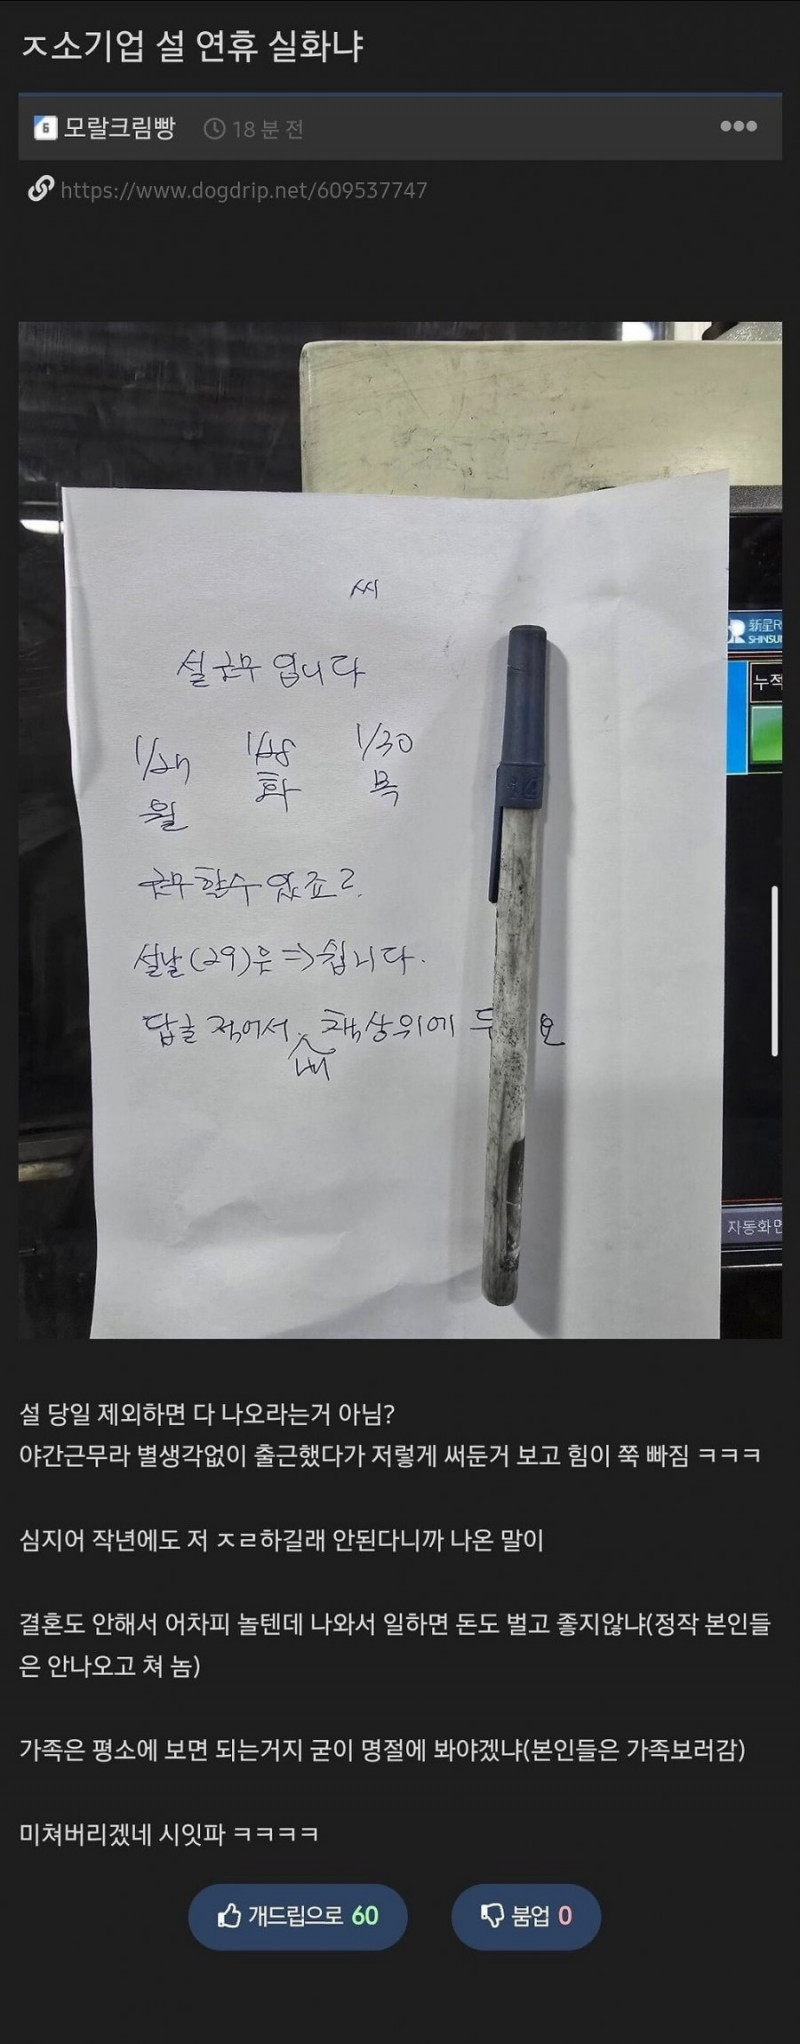 ㅈ소기업 설 연휴 실화냐
6 모랄크림빵 18 분 전
https://www.dogdrip.net/609537747
씨
설 근무 입니다
1/27 1/28 1/30
월 화 목
근무 할수 있죠?
설날(29)은 => 쉽니다.
답글 적어서 내 책상위에 두 요
新星R
SHINSU
누적
자동화면
설 당일 제외하면 다 나오라는거 아님?
야간근무라 별생각없이 출근했다가 저렇게 써둔거 보고 힘이 쭉 빠짐 ㅋㅋㅋ
심지어 작년에도 저 ㅈㄹ하길래 안된다니까 나온 말이
결혼도 안해서 어차피 놀텐데 나와서 일하면 돈도 벌고 좋지않냐(정작 본인들
은 안나오고 쳐 놈)
가족은 평소에 보면 되는거지 굳이 명절에 봐야겠냐(본인들은 가족보러감)
미쳐버리겠네 시잇파 ㅋㅋㅋㅋ
개드립으로 60 붐업 0